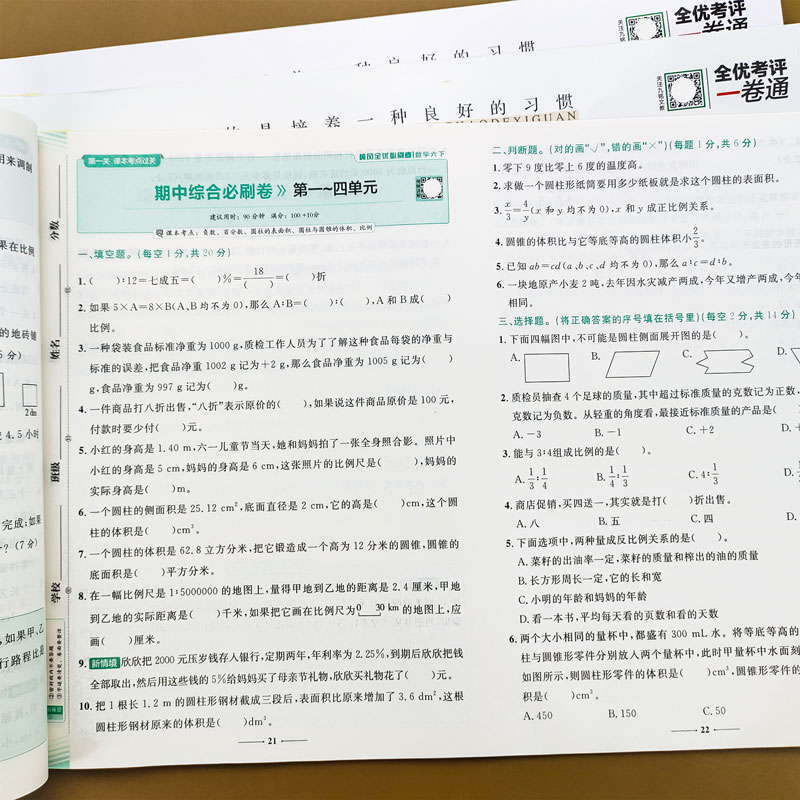 全优考评
一卷通
关注九铭文教
一种良好的习惯
全优考评
一卷通
关注九铭文教
的是培养一种良好的习惯
用来调制
果在比例
的地砖铺
2 dm
4.5小时
完成;如果
?(7分)
如果甲、乙
行路程比是
分数
姓名
班级
学校
第一关 课本考点过关
黄冈全优必刷卷 数学六下
期中综合必刷卷》 第一~四单元
建议用时:90分钟 满分:100+10分
课本考点:负数、百分数、圆柱的表面积、圆柱与圆锥的体积、比例
一、填空题。(每空1分,共20分)
1.( ):12=七成五=( )%=18/( )=( )折
2.如果5×A=8×B(A、B均不为0),那么A:B=( ):( ),A和B成( )
比例。
3.一种袋装食品标准净重为1000 g,质检工作人员为了了解这种食品每袋的净重与
标准的误差,把食品净重1002 g记为+2 g,那么食品净重为1005 g记为( )
g,食品净重为997 g记为( )g。
4.一件商品打八折出售,“八折”表示原价的( ),如果说这件商品原价是100元,
付款时要少付( )元。
5.小红的身高是1.40 m,六一儿童节当天,她和妈妈拍了一张全身照合影。照片中
小红的身高是5 cm,妈妈的身高是6 cm,这张照片的比例尺是( ),妈妈的
实际身高是( )m。
6.一个圆柱的侧面积是25.12 cm²,底面直径是2 cm,它的高是( )cm,这个圆
柱的体积是( )cm³。
7.一个圆柱的体积是62.8立方分米,把它锻造成一个高为12分米的圆锥,圆锥的
底面积是( )平方分米。
8.在一幅比例尺是1:5000000的地图上,量得甲地到乙地的距离是2.4厘米,甲地
到乙地的实际距离是( )千米,如果把它画在比例尺为0 30 km的地图上,应
画( )厘米。
9.新情境 欣欣把2000元压岁钱存入银行,定期两年,年利率为2.25%,到期后欣欣把钱
全部取出,然后用这些钱的5%给妈妈买了母亲节礼物,欣欣买礼物花了( )元。
10.把1根长1.2 m的圆柱形钢材截成三段后,表面积比原来增加了3.6 dm²,这根
圆柱形钢材原来的体积是( )dm³。
21
二、判断题。(对的画“√”,错的画“×”)(每题1分,共6分)
1.零下9度比零上6度的温度高。
2.求做一个圆柱形纸筒要用多少纸板就是求这个圆柱的表面积。
3.x/3=4/y(x和y均不为0),x和y成正比例关系。
4.圆锥的体积比与它等底等高的圆柱体积小2/3。
5.已知ab=cd(a、b、c、d均不为0),那么a:c=d:b。
6.一块地原产小麦2吨,去年因水灾减产两成,今年又增产两成,今年
相同。
三、选择题。(将正确答案的序号填在括号里)(每空2分,共14分)
1.下面四幅图中,不可能是圆柱侧面展开图的是( )。
A. B. C. D.
2.质检员抽查4个足球的质量,其中超过标准质量的克数记为正数,
克数记为负数。从轻重的角度看,最接近标准质量的产品是(
A.-3 B.-1 C.+2 D.+
3.能与3:4组成比例的是( )。
A.1/3:1/4 B.1/4:1/3 C.4:1/3 D.
4.商店促销,买四送一,其实就是打( )折出售。
A.八 B.五 C.四 D.
5.下面选项中,两种量成反比例关系的是( )。
A.菜籽的出油率一定,菜籽的质量和榨出的油的质量
B.长方形周长一定,它的长和宽
C.小明的年龄和妈妈的年龄
D.看一本书,平均每天看的页数和看的天数
6.两个大小相同的量杯中,都盛有300 mL水。将等底等高的
柱与圆锥形零件分别放入两个量杯中,此时甲量杯中水面刻
如图所示,则圆柱形零件的体积是( )cm³,圆锥形零件的
积是( )cm³。
A.450 B.150 C.50
22